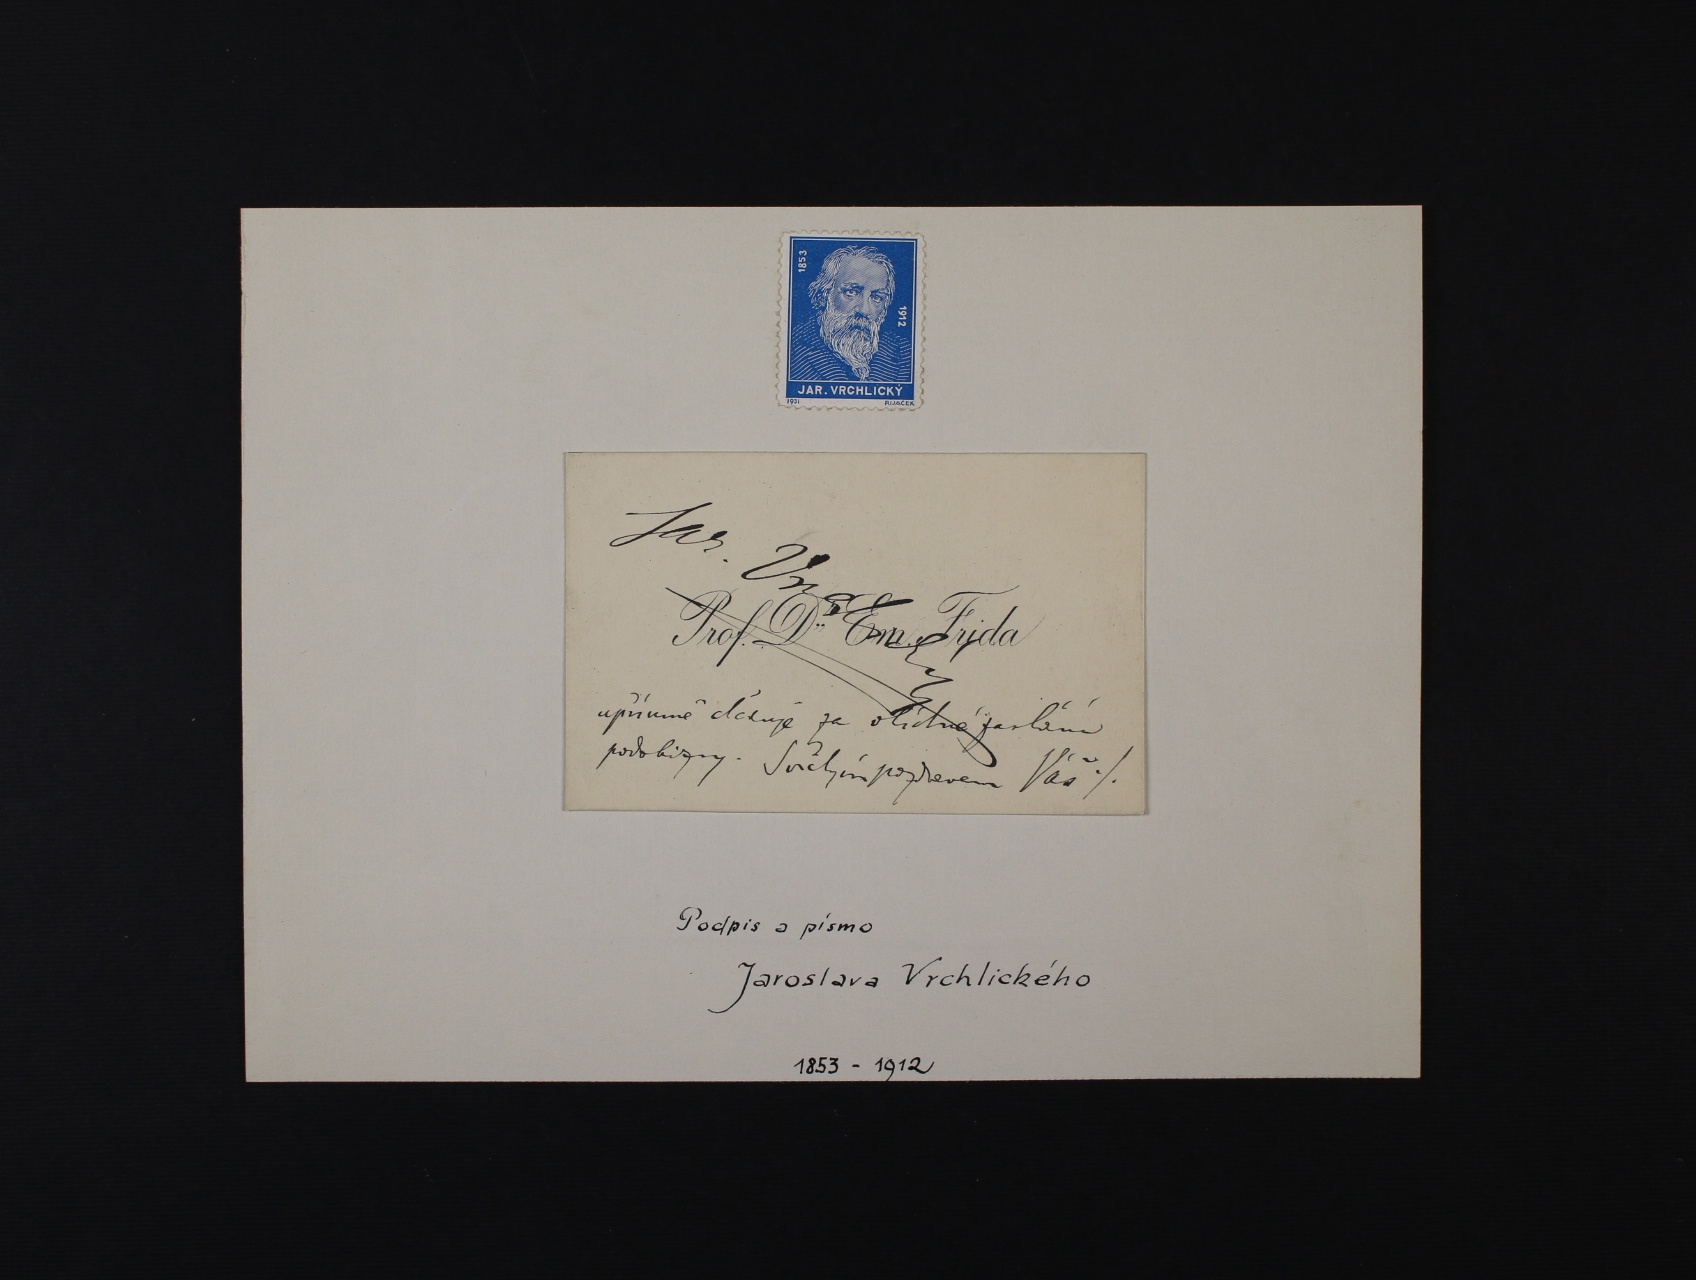 1853
1912
JAR. VRCHLICKÝ
1931 RIJÁČEK
Jar. Vrchlický
Prof. Dr. Em. Frida
upřímně děkuje za vlídné zaslání
podobizny. Srdečným pozdravem Váš ./.
Podpis a písmo
Jaroslava Vrchlického
1853 - 1912